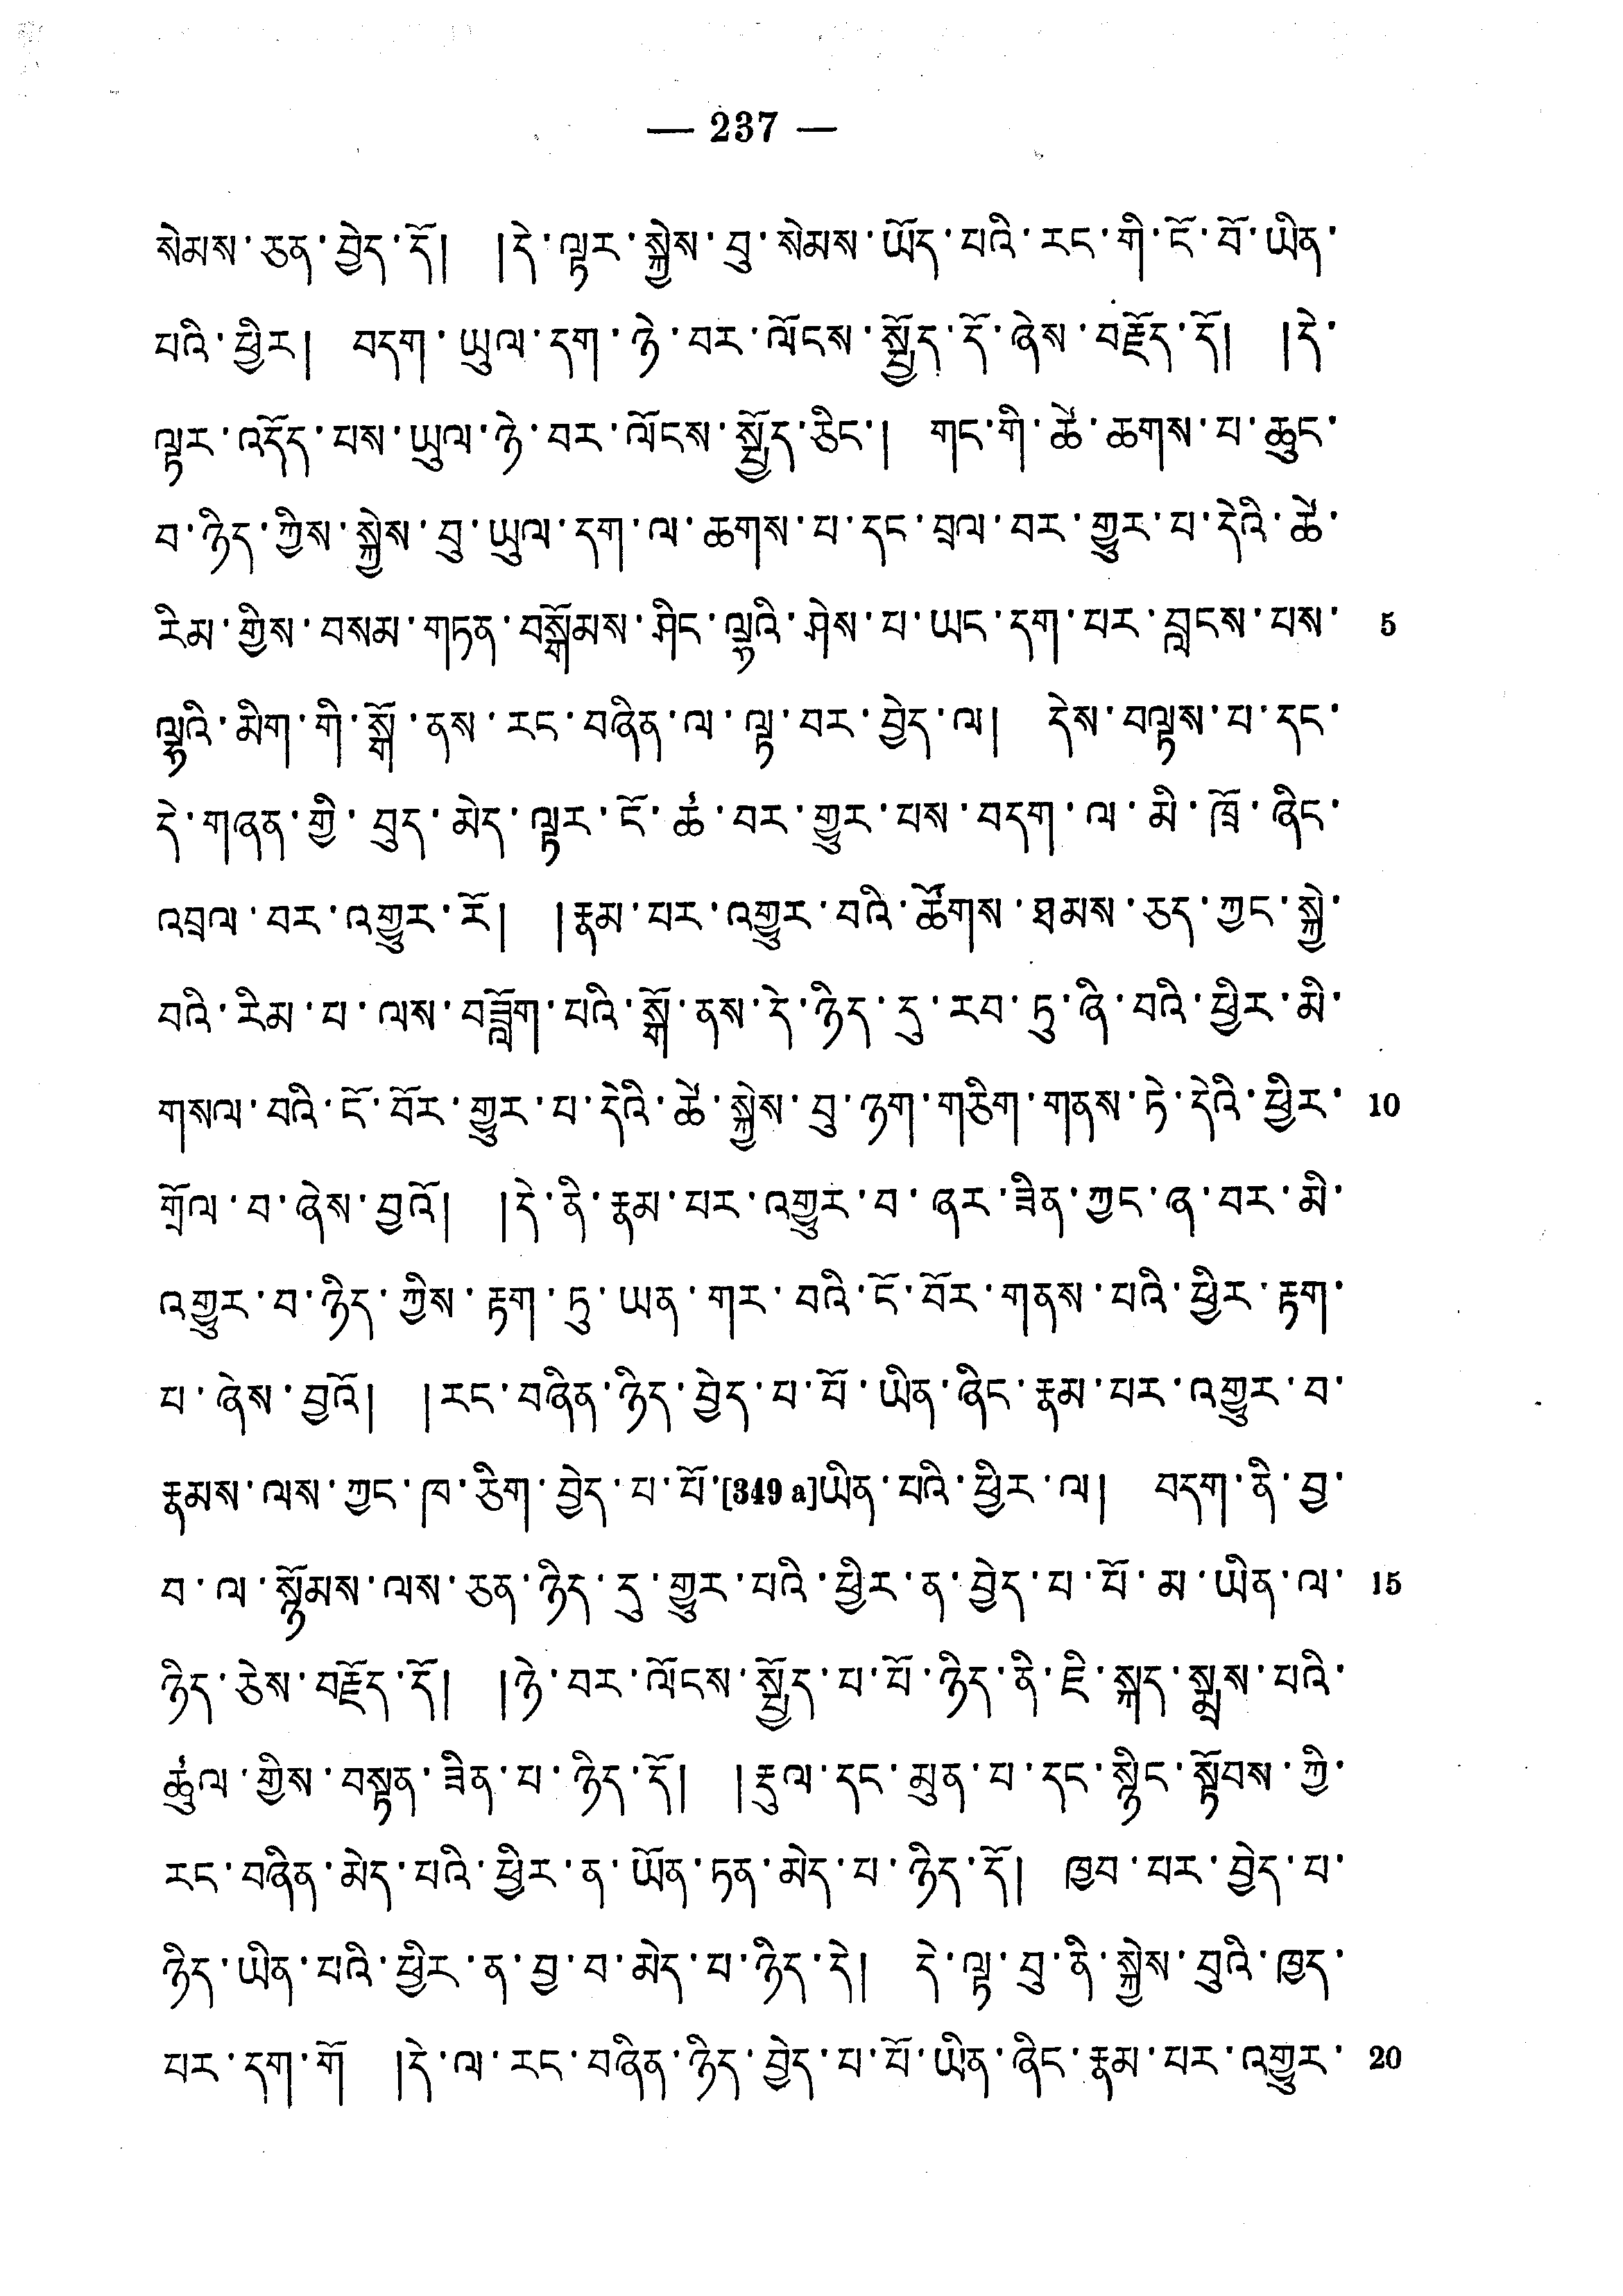 — 237 —
སེམས་ཅན་བྱེད་དོ། །དེ་ལྟར་སྐྱེས་བུ་སེམས་ཡོད་པའི་རང་གི་ངོ་བོ་ཡིན་
པའི་ཕྱིར། བདག་ཡུལ་དག་ཉེ་བར་ལོངས་སྤྱོད་དོ་ཞེས་བརྗོད་དོ། །དེ་
ལྟར་འདོད་པས་ཡུལ་ཉེ་བར་ལོངས་སྤྱོད་ཅིང་། གང་གི་ཚེ་ཆགས་པ་ཆུང་
བ་ཉིད་ཀྱིས་སྐྱེས་བུ་ཡུལ་དག་ལ་ཆགས་པ་དང་བྲལ་བར་གྱུར་པ་དེའི་ཚེ་
རིམ་གྱིས་བསམ་གཏན་བསྒོམས་ཤིང་ལྷའི་ཤེས་པ་ཡང་དག་པར་བླངས་པས་ 5
ལྷའི་མིག་གི་སྒོ་ནས་རང་བཞིན་ལ་ལྟ་བར་བྱེད་ལ། དེས་བལྟས་པ་དང་
དེ་གཞན་གྱི་བུད་མེད་ལྟར་ངོ་ཚ་བར་གྱུར་པས་བདག་ལ་མི་ཁྲོ་ཞིང་
འབྲལ་བར་འགྱུར་རོ། །རྣམ་པར་འགྱུར་བའི་ཚོགས་ཐམས་ཅད་ཀྱང་སྐྱེ་
བའི་རིམ་པ་ལས་བཟློག་པའི་སྒོ་ནས་དེ་ཉིད་དུ་རབ་ཏུ་ཞི་བའི་ཕྱིར་མི་
གསལ་བའི་ངོ་བོར་གྱུར་པ་དེའི་ཚེ་སྐྱེས་བུ་ཉག་གཅིག་གནས་ཏེ་དེའི་ཕྱིར་ 10
གྲོལ་བ་ཞེས་བྱའོ། །དེ་ནི་རྣམ་པར་འགྱུར་བ་ཞར་ཟིན་ཀྱང་ཞ་བར་མི་
འགྱུར་བ་ཉིད་ཀྱིས་རྟག་ཏུ་ཡན་གར་བའི་ངོ་བོར་གནས་པའི་ཕྱིར་རྟག་
པ་ཞེས་བྱའོ། །རང་བཞིན་ཉིད་བྱེད་པ་པོ་ཡིན་ཞིང་རྣམ་པར་འགྱུར་བ་
རྣམས་ལས་ཀྱང་ཁ་ཅིག་བྱེད་པ་པོ་[349 a]ཡིན་པའི་ཕྱིར་ལ། བདག་ནི་བྱ་
བ་ལ་སྙོམས་ལས་ཅན་ཉིད་དུ་གྱུར་པའི་ཕྱིར་ན་བྱེད་པ་པོ་མ་ཡིན་ལ་ 15
ཉིད་ཅེས་བརྗོད་དོ། །ཉེ་བར་ལོངས་སྤྱོད་པ་པོ་ཉིད་ནི་ཇི་སྐད་སྨྲས་པའི་
ཚུལ་གྱིས་བསྟན་ཟིན་པ་ཉིད་དོ། །རྡུལ་དང་མུན་པ་དང་སྙིང་སྟོབས་ཀྱི་
རང་བཞིན་མེད་པའི་ཕྱིར་ན་ཡོན་ཏན་མེད་པ་ཉིད་དོ། ཁྱབ་པར་བྱེད་པ་
ཉིད་ཡིན་པའི་ཕྱིར་ན་བྱ་བ་མེད་པ་ཉིད་དེ། དེ་ལྟ་བུ་ནི་སྐྱེས་བུའི་ཁྱད་
པར་དག་གོ །དེ་ལ་རང་བཞིན་ཉིད་བྱེད་པ་པོ་ཡིན་ཞིང་རྣམ་པར་འགྱུར་ 20